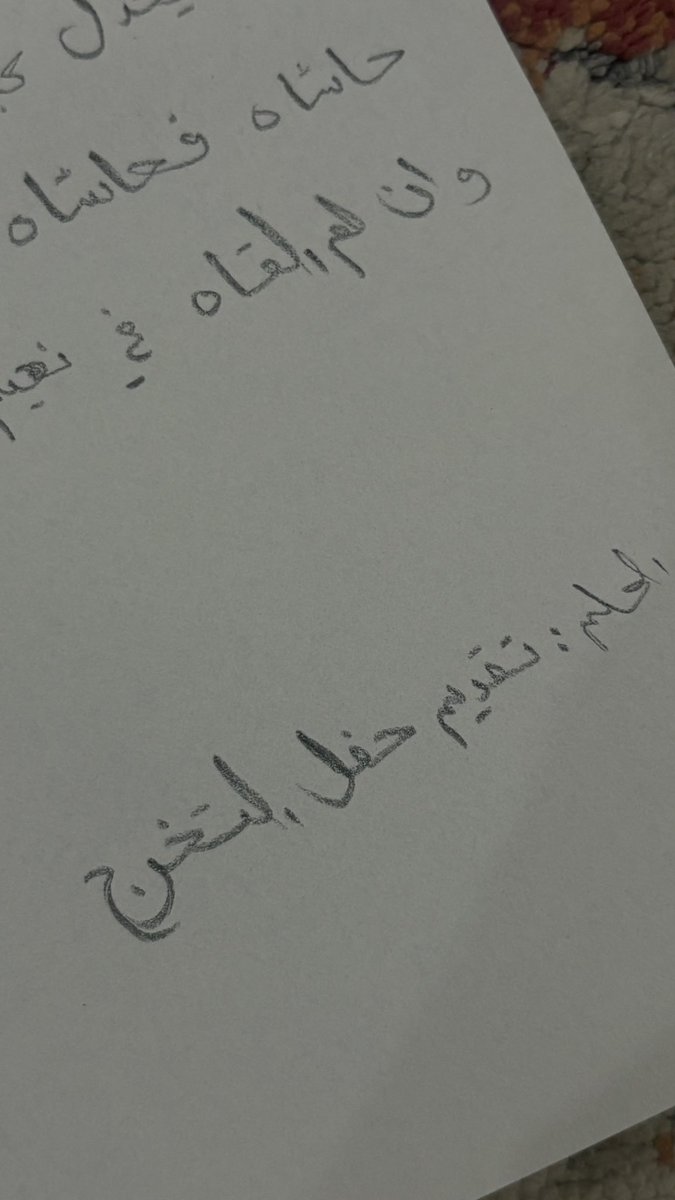 حاشاه فحاشاه
وان لم القاه في نعيم
الحلم : تقديم حفل التخرج